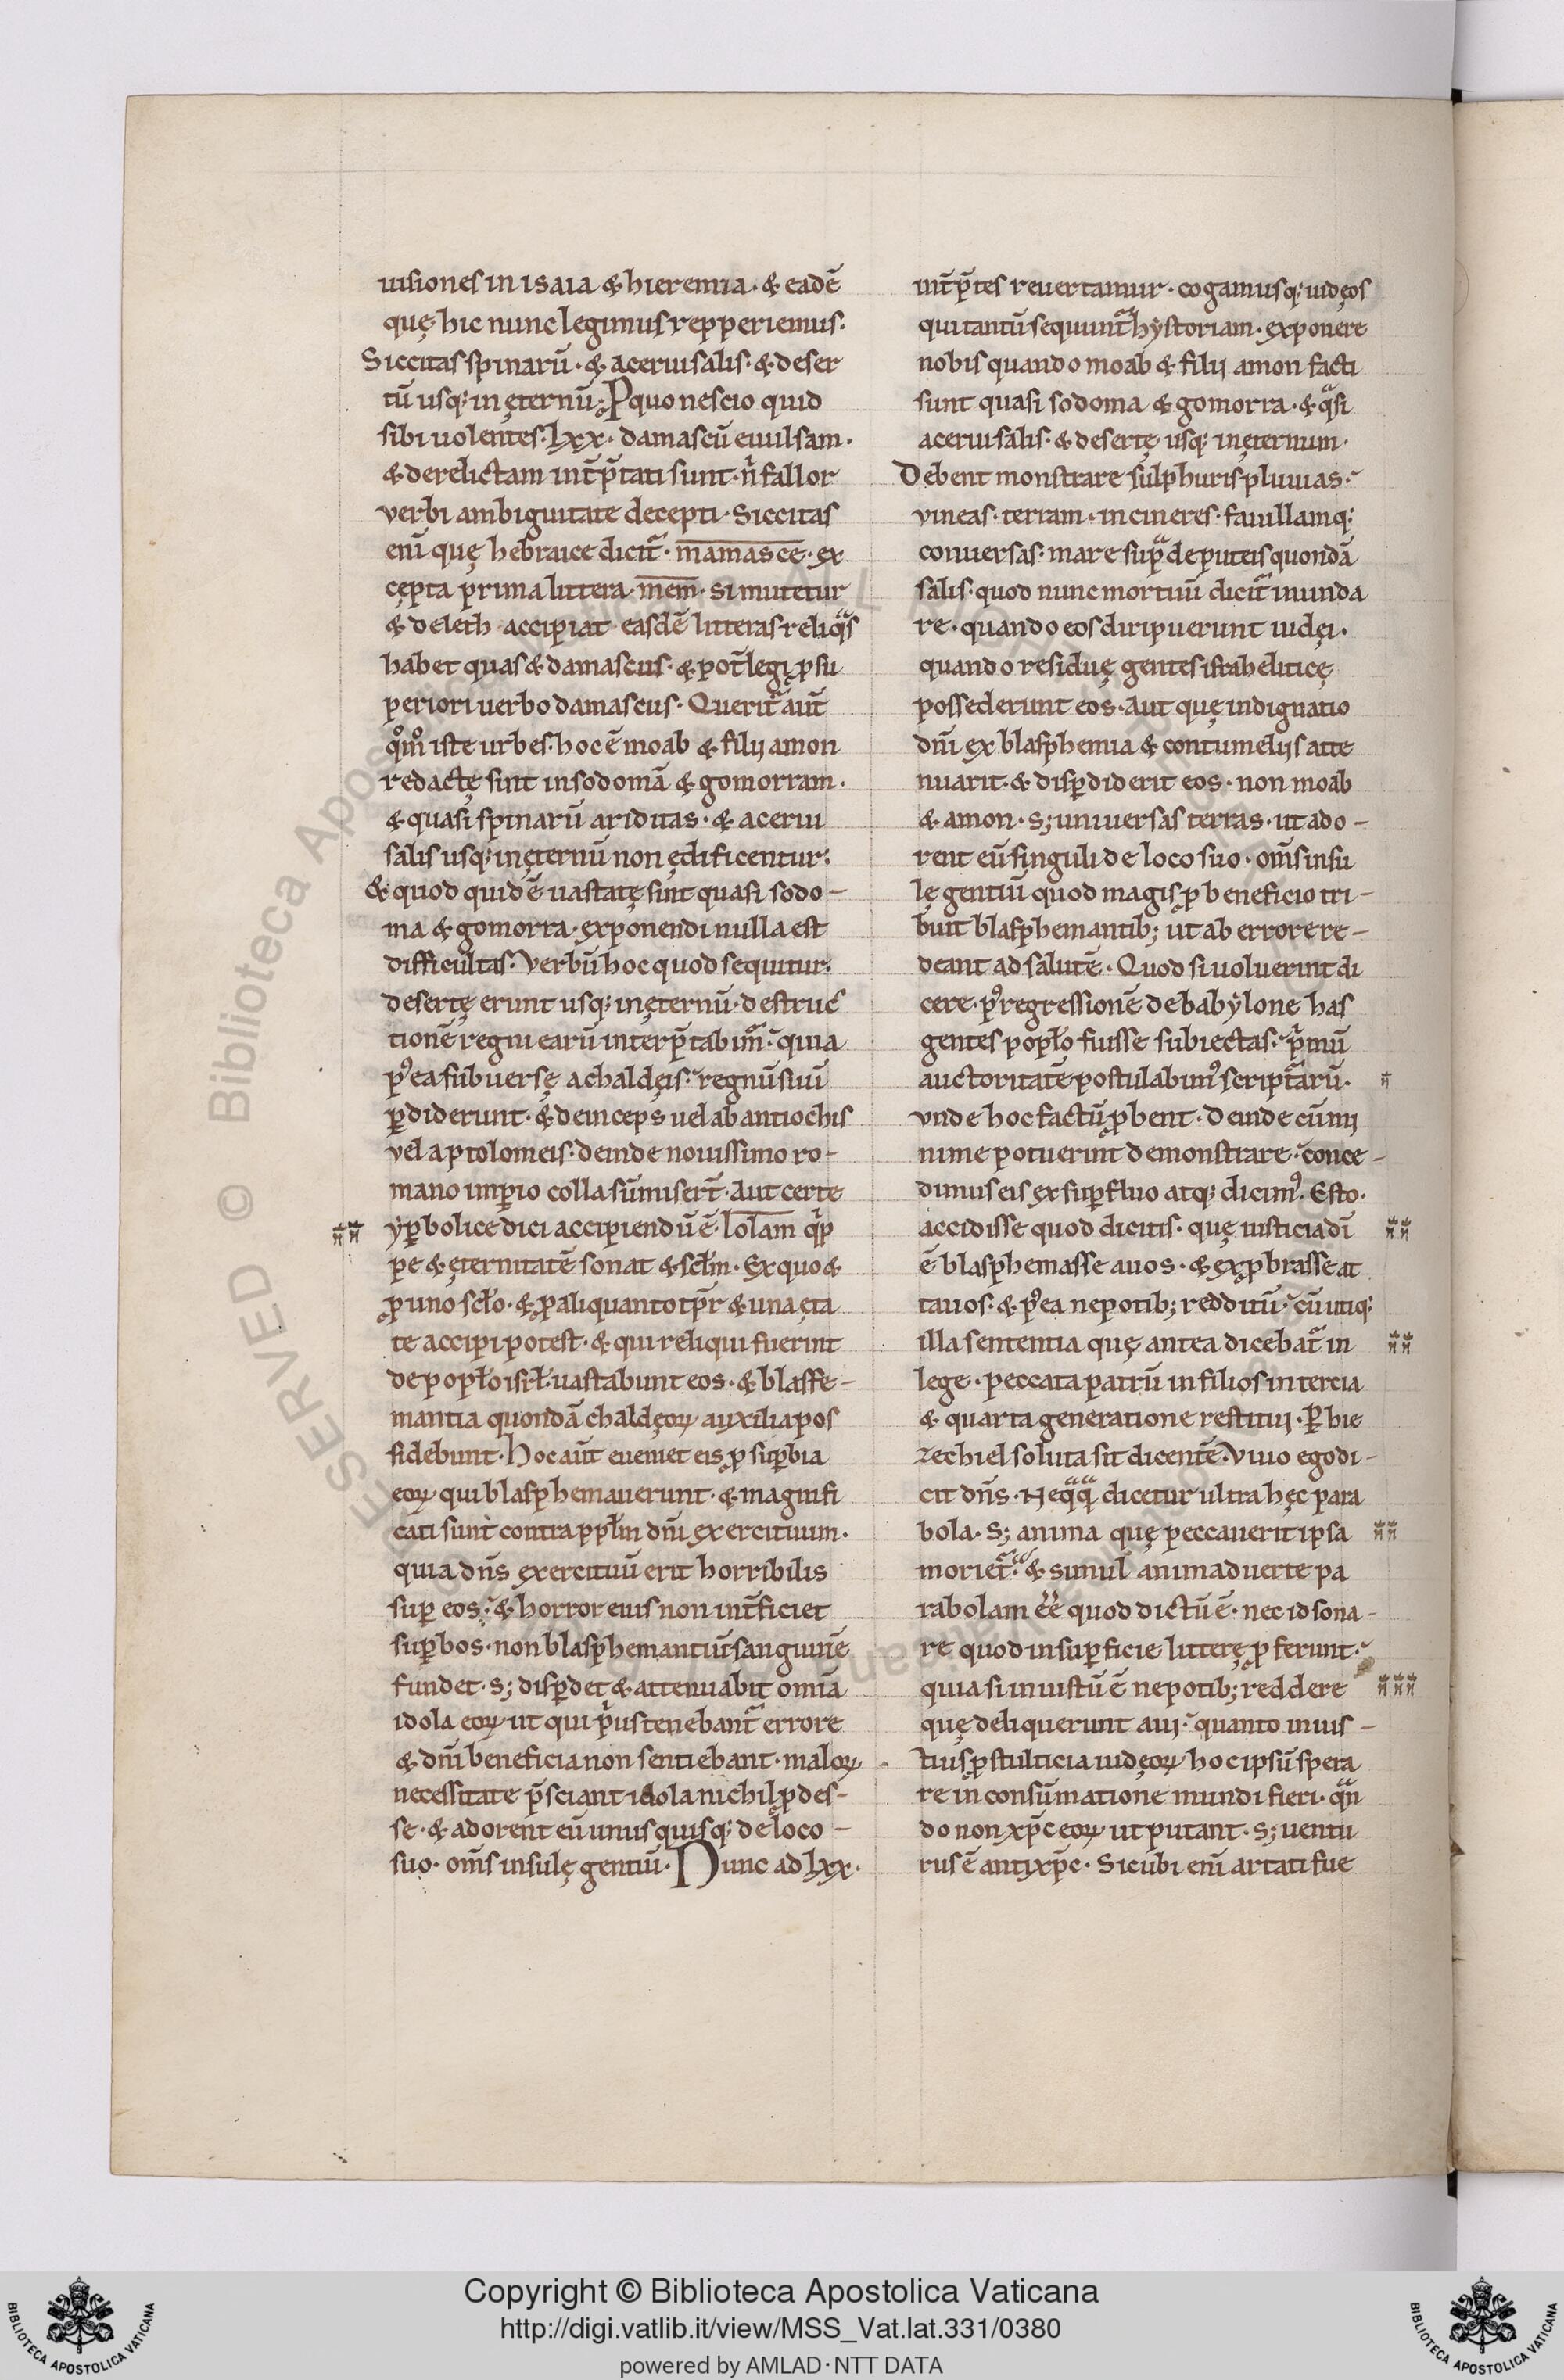 uisiones in isaia & hieremia · & eadē
quę hic nunc legimus repperiemus ·
Siccitas spinarū · & acerui salis · & deser
tū usq; in ęternū · Pro quo nescio quid
sibi uolentes · lxx · damascū euulsam ·
& derelictam int̄p̄tati sunt · n̄ fallor
verbi ambiguitate decepti · Siccitas
eni̅ quę hebraice dicit̄ · mamasce · ex
cępta prima littera · mem · si mutetur
& deleth accipiat easdē litteras reliqas
habet quas & damascus · & pot̄ legi ꝓ su
periori uerbo damascus · Querit̄ aut̄
qͦmͦ iste urbes · hoc ē moab & filij amon
redactę sint in sodomā & gomorram ·
& quasi spinarū ariditas · & acerui
salis usq; in ęternū non ędificentur ·
& quod quidē uastatę sint quasi sodo-
ma & gomorra · exponendi nulla est
difficultas · Verbū hoc quod sequitur ·
desertę erunt usq; in ęternū · destruc
tionē regni earū interp̄tabim̄ · quia
pꝰea subuersę a chaldęis · regnū suū
ꝑdiderunt · & deinceps uel ab antiochis
vel a ptolomeis · deinde nouissimo ro-
mano imꝑio colla sūmisert̄ · Aut certe
yꝑbolice dici accipiendū ē · lolam qip
pe & ęternitatē sonat & scl̄m · Ex quo &
ꝓ uno scl̄o · & ꝓ aliquanto tp̄r & una ęta
te accipi potest · & qui reliqui fuerint
de popl̄o isrl̄ · uastabunt eos · & blasfe-
mantia quondā chaldęoꝝ auxilia pos
sidebunt · Hoc aut̄ eueniet eis ꝓ suꝑbia
eoꝝ qui blasphemauerunt · & magnifi
cati sunt contra ppl̄m dn̄i exercituum ·
quia dn̄s exercituū erit horribilis
suꝑ eos · & horror eius non int̄ficiet
suꝑbos · non blasphemantiū sanguinē
fundet · s; disꝑdet & attenuabit omīa
idola eoꝝ ut qui pius tenebant̄ errore
& dn̄i beneficia non sentiebant · maloꝝ
necessitate p̄sciant idola nichil ꝓdes-
se · & adorent eū unusquisq; de loco -
suo · om̄s insulę gentiū · Nunc ad lxx ·
int̄p̄tes reuertamur · cogamusq; iudęos
qui tantū sequunt̄ hystoriam · exponere
nobis quando moab & filij amon facti
sunt quasi sodoma & gomorra · & qasi
acerui salis · & desertę usq; in ęternum ·
Debent monstrare sulphuris pluuias ·
vineas · terram · in cineres · fauillamq;
conuersas · mare supa de puteis quondā
salis · quod nunc mortuū dicit̄ inunda
re · quando eos diripuerunt iudęi ·
quando residuę gentes israheliticę
possederunt eos · Aut quę indignatio
dn̄i ex blasphemia & contumelijs atte
nuarit · & disꝑdiderit eos · non moab
& amon · s; uniuersas terras · ut ado-
rent eū singuli de loco suo · om̄s insu
lę gentiū quod magis ꝓ beneficio tri-
buit blasphemantib; ut ab errore re-
deant ad salutē · Quod si uoluerint di
cere · pꝰ regressionē de babylone has
gentes popl̄o fuisse subiectas · pimū
auctoritatē postulabimꝰ scriptarū ·
vnde hoc factū ꝓbent · Deinde cū mi
nime potuerint demonstrare · conce-
dimus eis ex suꝑfluo atq; dicimꝰ · Esto ·
accidisse quod dicitis · quę iusticia dī
ē blasphemasse auos · & exꝓbrasse at
tauos · & pꝰea nepotib; redditū · cū utiq;
illa sententia quę antea dicebat̄ in
lege · peccata patrū in filios in tercia
& quarta generatione restitui · Ꝑ hie
zechiel soluta sit dicentē · Viuo ego di-
cit dn̄s · Neqaqa dicetur ultra hęc para
bola · S; anima quę peccauerit ipsa
moriet̄ · & simul animaduerte pa
rabolam ēē quod dictū ē · nec id sona-
re quod in suꝑficie litterę ꝓferunt ·
quia si iniustū ē nepotib; reddere
quę deliquerunt aui · quanto inius-
tius ꝓ stulticia iudęoꝝ hoc ipsū spera
re in consūmatione mundi fieri · qan
do non xp̄c eoꝝ ut putant · s; uentu
rus ē antixp̄c · Sicubi eni̅ artati fue